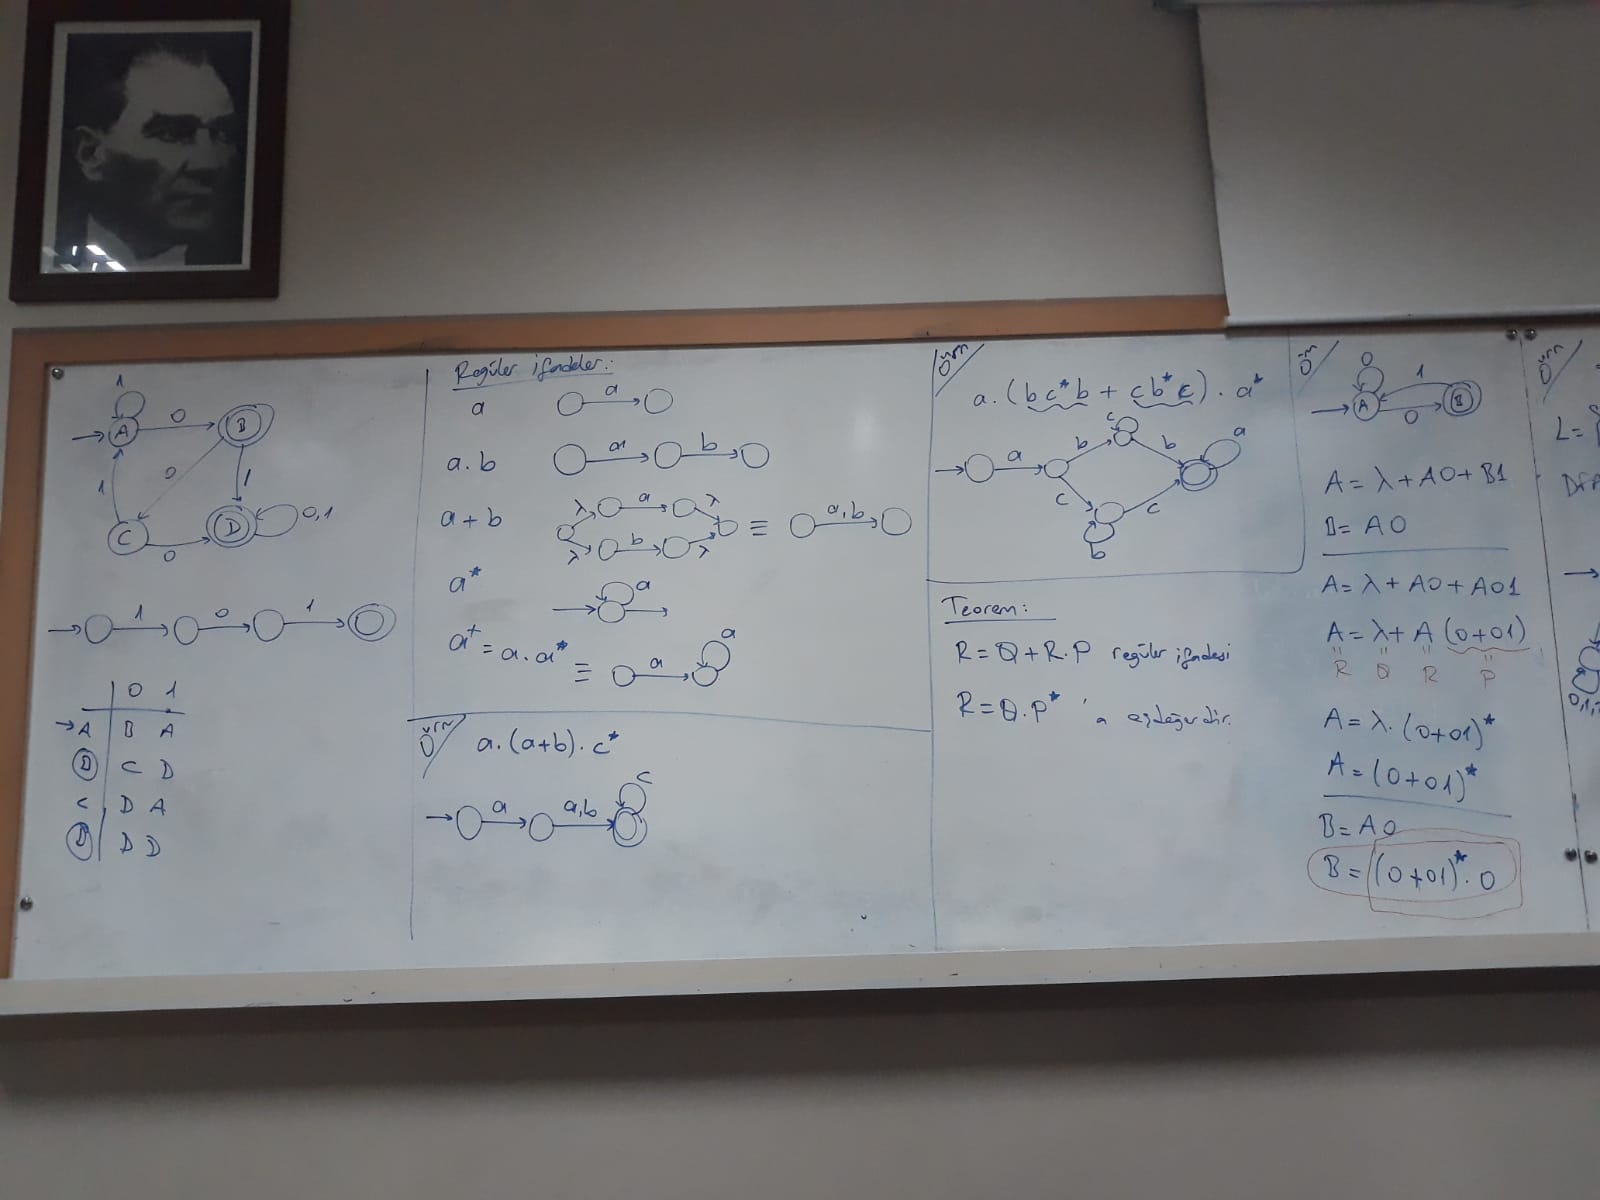 1
A
0
B
0
1
1
C
0
D
0,1
1
0
1
0 1
→A B A
C D
C D A
D D D
Regüler ifadeler:
a
a
a.b
a
b
a+b
λ
a
λ
λ
b
λ
≡
a,b
a*
a
a⁺ = a.a*
≡
a
a
Örn
a.(a+b).c*
a
a,b
c
Örn
a.(bc*b + cb*c).a*
a
b
c
b
a
c
c
b
Teorem:
R = Q+R.P regüler ifadesi
R = Q.P* 'a eşdeğerdir.
Örn
0
A
1
0
B
A = λ+A0+B1
B = A0
A = λ+A0+A01
A = λ+A(0+01)
R Q R P
A = λ.(0+01)*
A = (0+01)*
B = A0
B = (0+01)*.0
Örn
L=